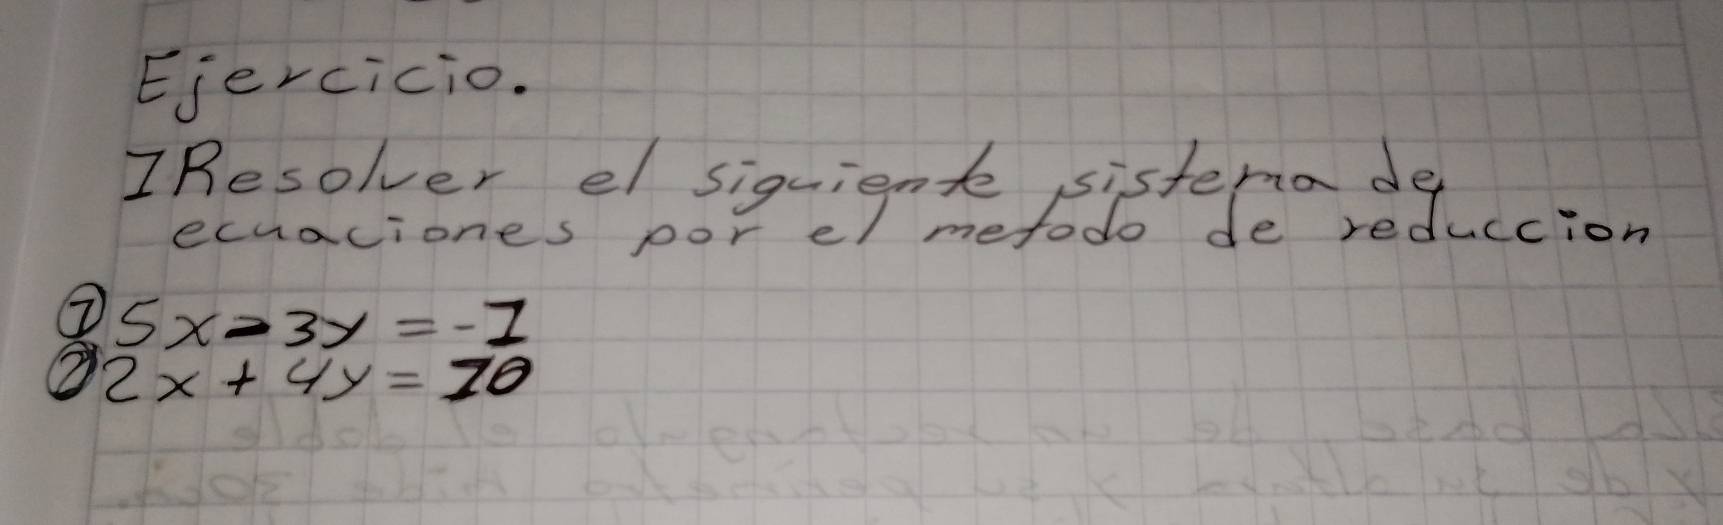 Ejercicio.
I Resolver el siguiente sistema de
ecuaciones por el metodo de reduccion
① 5x - 3y = -1
② 2x + 4y = 10